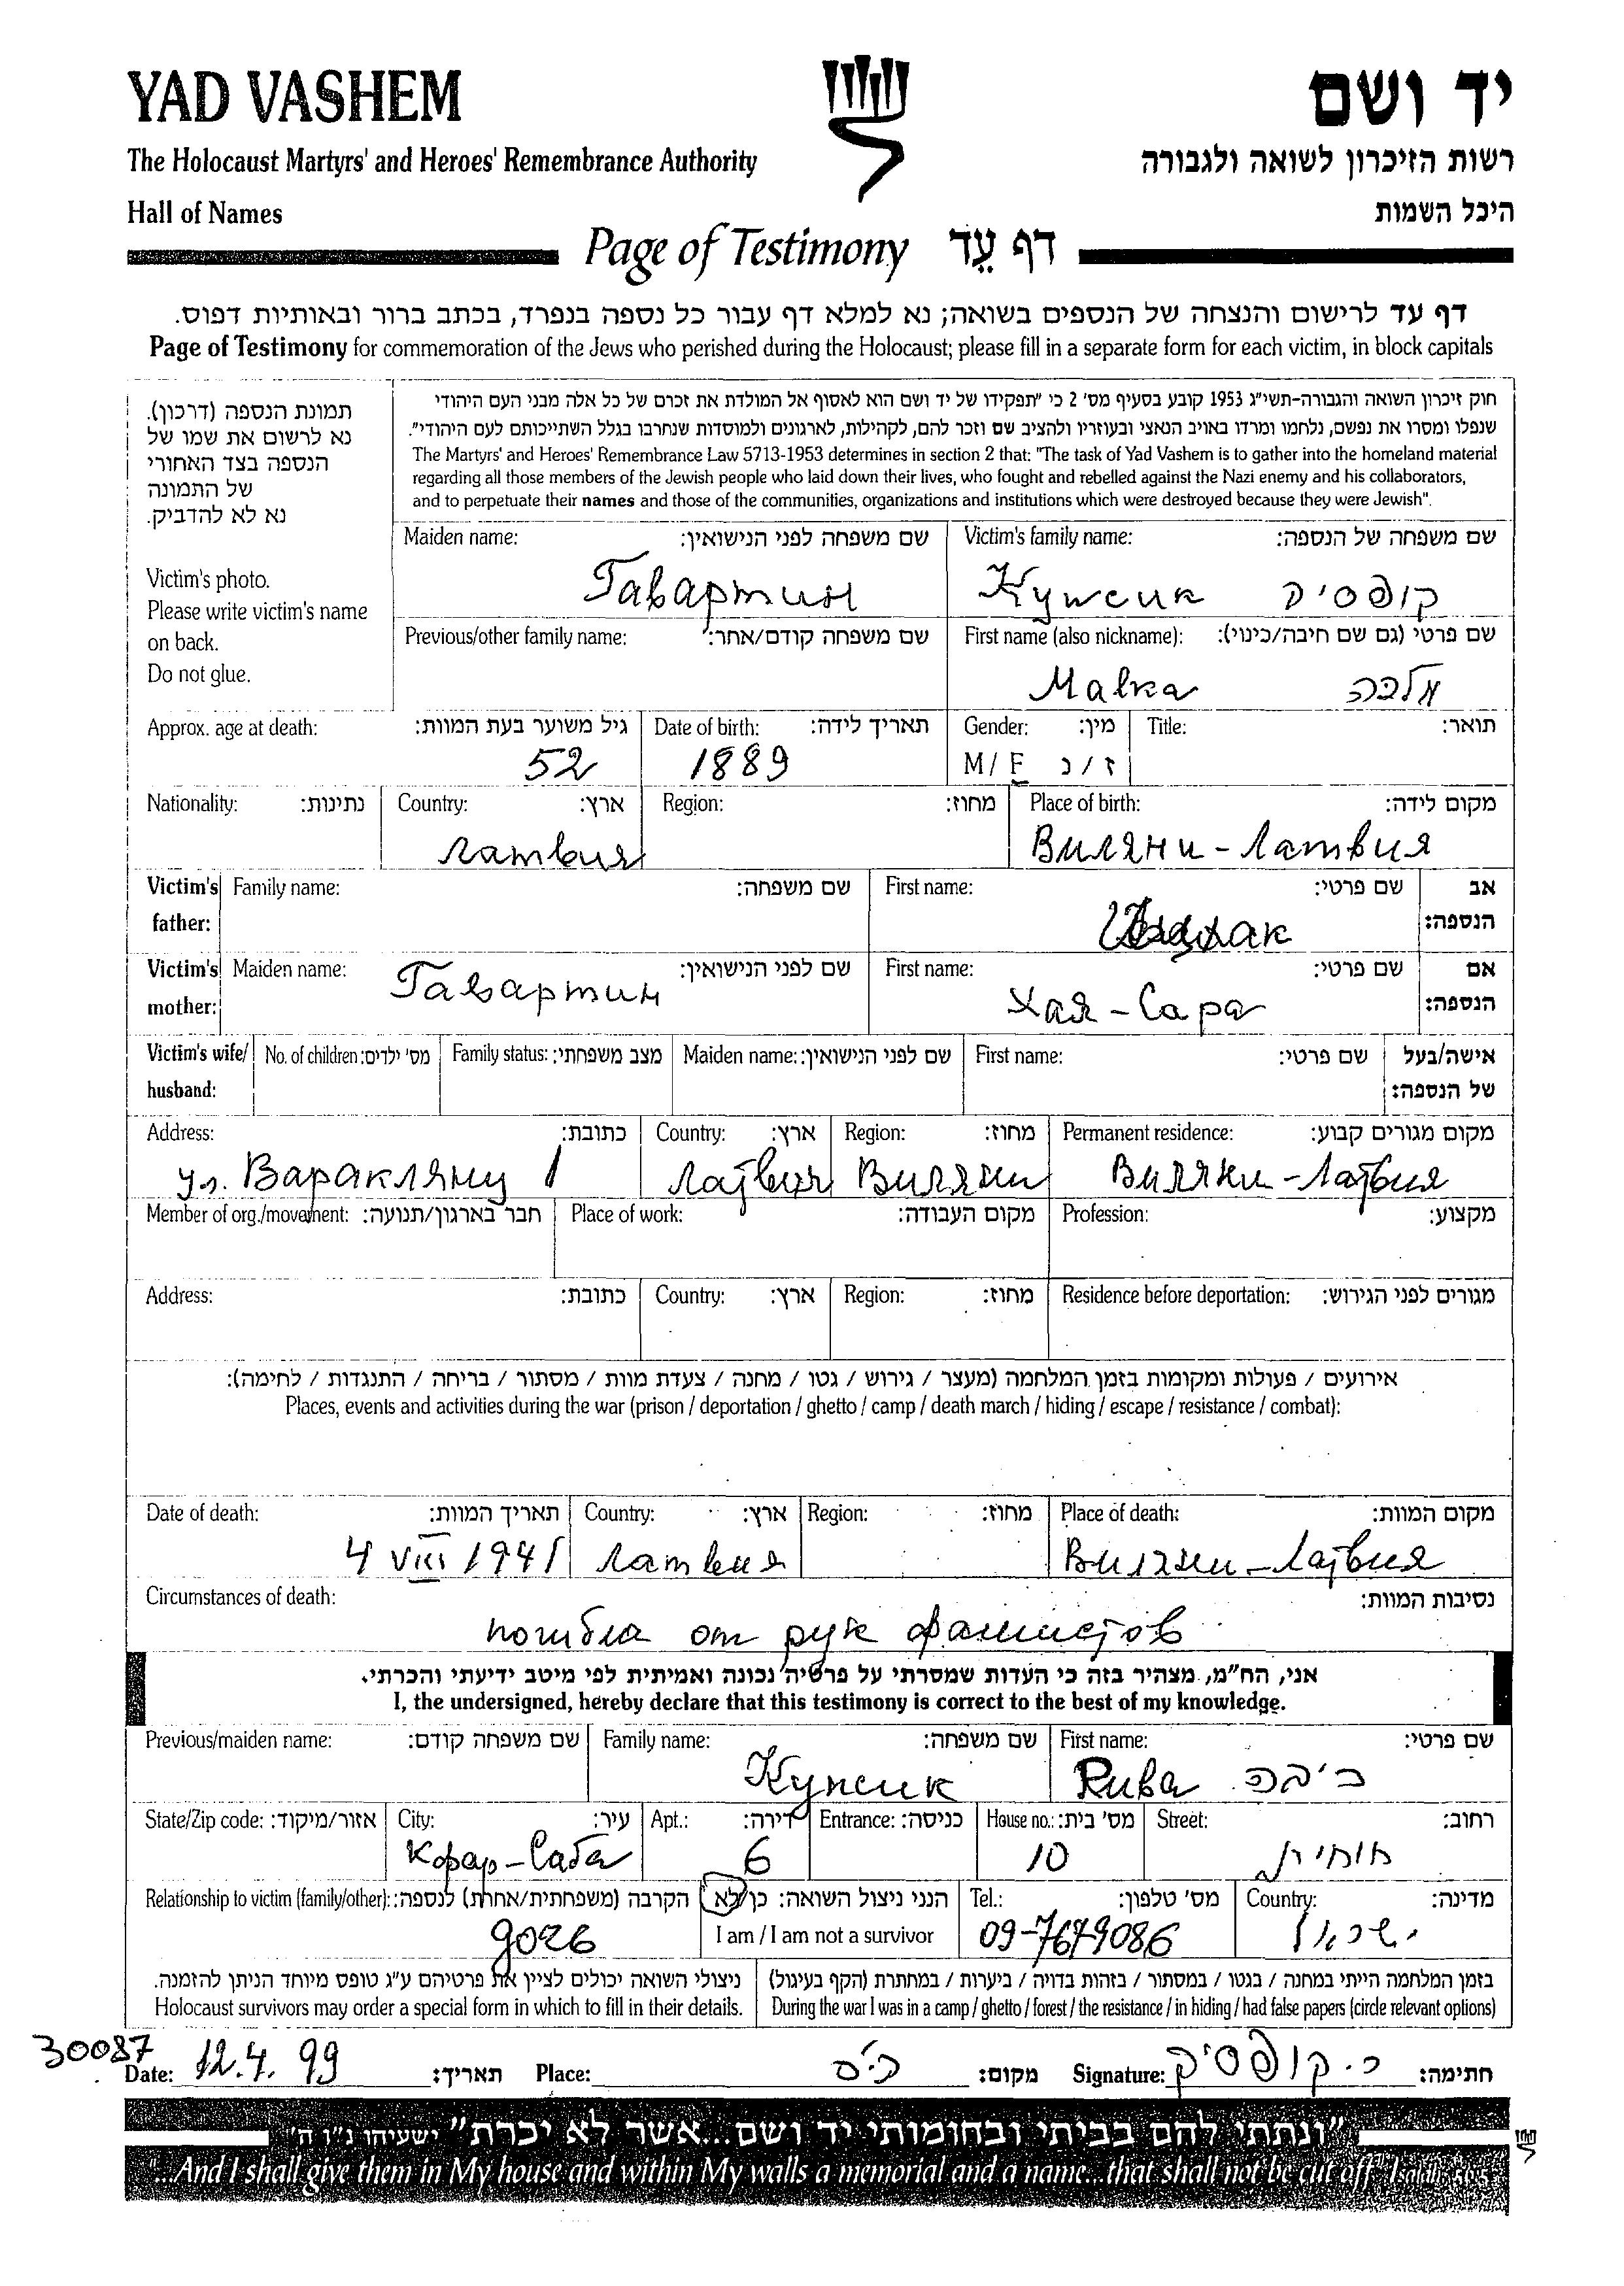 YAD VASHEM
יד ושם
The Holocaust Martyrs' and Heroes' Remembrance Authority
רשות הזיכרון לשואה ולגבורה
Hall of Names
היכל השמות
Page of Testimony דף עֵד
דף עד לרישום והנצחה של הנספים בשואה; נא למלא דף עבור כל נספה בנפרד, בכתב ברור ובאותיות דפוס.
Page of Testimony for commemoration of the Jews who perished during the Holocaust; please fill in a separate form for each victim, in block capitals
תמונת הנספה (דרכון).
נא לרשום את שמו של
הנספה בצד האחורי
של התמונה
נא לא להדביק.
Victim's photo.
Please write victim's name
on back.
Do not glue.
חוק זיכרון השואה והגבורה-תשי"ג 1953 קובע בסעיף מס' 2 כי "תפקידו של יד ושם הוא לאסוף אל המולדת את זכרם של כל אלה מבני העם היהודי
שנפלו ומסרו את נפשם, נלחמו ומרדו באויב הנאצי ובעוזריו ולהציב שם וזכר להם, לקהילות, לארגונים ולמוסדות שנחרבו בגלל השתייכותם לעם היהודי".
The Martyrs' and Heroes' Remembrance Law 5713-1953 determines in section 2 that: "The task of Yad Vashem is to gather into the homeland material
regarding all those members of the Jewish people who laid down their lives, who fought and rebelled against the Nazi enemy and his collaborators,
and to perpetuate their names and those of the communities, organizations and institutions which were destroyed because they were Jewish".
Maiden name: שם משפחה לפני הנישואין: Victim's family name: שם משפחה של הנספה:
Гавартин קופסיק
Previous/other family name: שם משפחה קודם/אחר: First name (also nickname): שם פרטי (גם שם חיבה/כינוי):
Малка מלכה
Approx. age at death: גיל משוער בעת המוות: Date of birth: תאריך לידה: Gender: מין: Title: תואר:
52 1889 M/ F ז / נ
Nationality: נתינות: Country: ארץ: Region: מחוז: Place of birth: מקום לידה:
Латвия Виляни - Латвия
Victim's father: Family name: שם משפחה: First name: שם פרטי: אב הנספה:
Victim's mother: Maiden name: שם לפני הנישואין: First name: שם פרטי: אם הנספה:
Гавартин Хая - Сара
Victim's wife/ husband: No. of children: מס' ילדים: Family status: מצב משפחתי: Maiden name: שם לפני הנישואין: First name: שם פרטי: אישה/בעל של הנספה:
Address: כתובת: Country: ארץ: Region: מחוז: Permanent residence: מקום מגורים קבוע:
ул. Варакляну 1 Латвия Виляни Виляни - Латвия
Member of org./movement: חבר בארגון/תנועה: Place of work: מקום העבודה: Profession: מקצוע:
Address: כתובת: Country: ארץ: Region: מחוז: Residence before deportation: מגורים לפני הגירוש:
אירועים / פעולות ומקומות בזמן המלחמה (מעצר / גירוש / גטו / מחנה / צעדת מוות / מסתור / בריחה / התנגדות / לחימה):
Places, events and activities during the war (prison / deportation / ghetto / camp / death march / hiding / escape / resistance / combat):
Date of death: תאריך המוות: Country: ארץ: Region: מחוז: Place of death: מקום המוות:
4 VIII 1941 Латвия Виляни - Латвия
Circumstances of death: נסיבות המוות:
погибла от рук фашистов
אני, הח"מ, מצהיר בזה כי העדות שמסרתי על פרטיה נכונה ואמיתית לפי מיטב ידיעתי והכרתי.
I, the undersigned, hereby declare that this testimony is correct to the best of my knowledge.
Previous/maiden name: שם משפחה קודם: Family name: שם משפחה: First name: שם פרטי:
Купсик Рива ריבה
State/Zip code: אזור/מיקוד: City: עיר: Apt.: דירה: Entrance: כניסה: House no.: מס' בית: Street: רחוב:
Кфар-Саба 6 10
Relationship to victim (family/other): הקרבה (משפחתית/אחרת) לנספה: הנני ניצול השואה: כן/לא Tel.: מס' טלפון: Country: מדינה:
дочь I am / I am not a survivor 09-7679086 ישראל
ניצולי השואה יכולים לציין את פרטיהם ע"ג טופס מיוחד הניתן להזמנה.
Holocaust survivors may order a special form in which to fill in their details.
בזמן המלחמה הייתי במחנה / בגטו / במסתור / בזהות בדויה / ביערות / במחתרת (הקף בעיגול)
During the war I was in a camp / ghetto / forest / the resistance / in hiding / had false papers (circle relevant options)
30087
Date: 12.4.99 תאריך: Place: כ"ס מקום: Signature: ר. קופסיק חתימה:
"ונתתי להם בביתי ובחומותי יד ושם...אשר לא יכרת" ישעיהו נ"ו ה'
"...And I shall give them in My house and within My walls a memorial and a name...that shall not be cut off" Isaiah 56:5